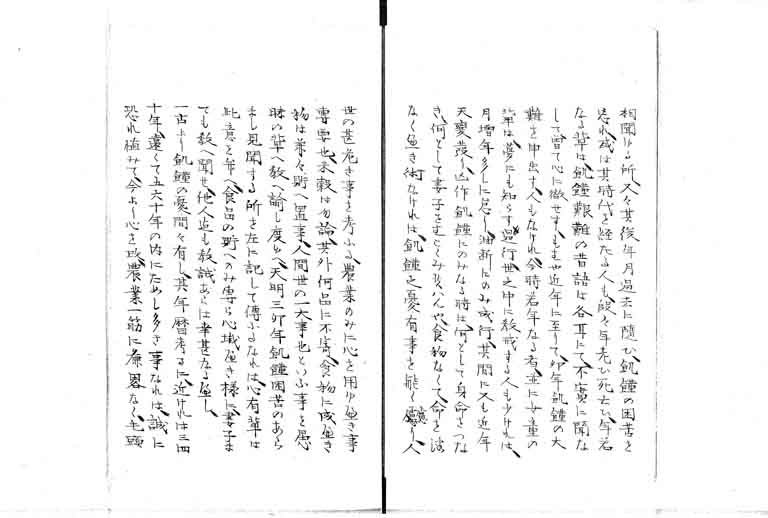 相聞ける所、又々其後年月過去に随ひ、飢饉の困苦を
忘れ、或は其時代を経たる人も段々年老ひ死去ひ、年若
なる輩は飢饉艱難の昔語は各耳にて不実に聞な
して曽て心に徹せす、もはや近年に至りて卯年飢饉の大
難を申出す人もなけれは、今時若年なる者並に女童の
輩は夢にも知らす、過行世之中に教戒する人も少けれは、
月増年多しに怠し油断にのみ成行、其間に又も近年
天変荒しく凶作飢饉にのみなる時は、何として身命をつな
き、何として妻子をはこくみ养はんや、食物なくて命を活
なく無き術なけれは、飢饉之憂有事を能く慮り、人
世の甚危き事を考ふる、農業のみに心を用ゆ無き事
専要也、米穀は勿論、其外何品に不寄食物に成無き
物は兼々貯へ置事人間世の一大事也といふ事を愚
昧の輩へ教へ諭し度ゆへ、天明三卯年飢饉困苦のあら
まし見聞する所を左に記して傳ふるなれは、心有輩は
此意を弁へ、食品の貯へのみ専ら心域無き様に妻子ま
ても教へ聞せ、他人迄も教誡あらは幸甚なる無し、
一古より飢饉の憂間々有し、其年暦考るに、近けれは三四
十年、遠くて五六十年の内にためし多き事なれは、誠に
恐れ極みて、今より心を改、農業一筋に麁畧なく、毛頭